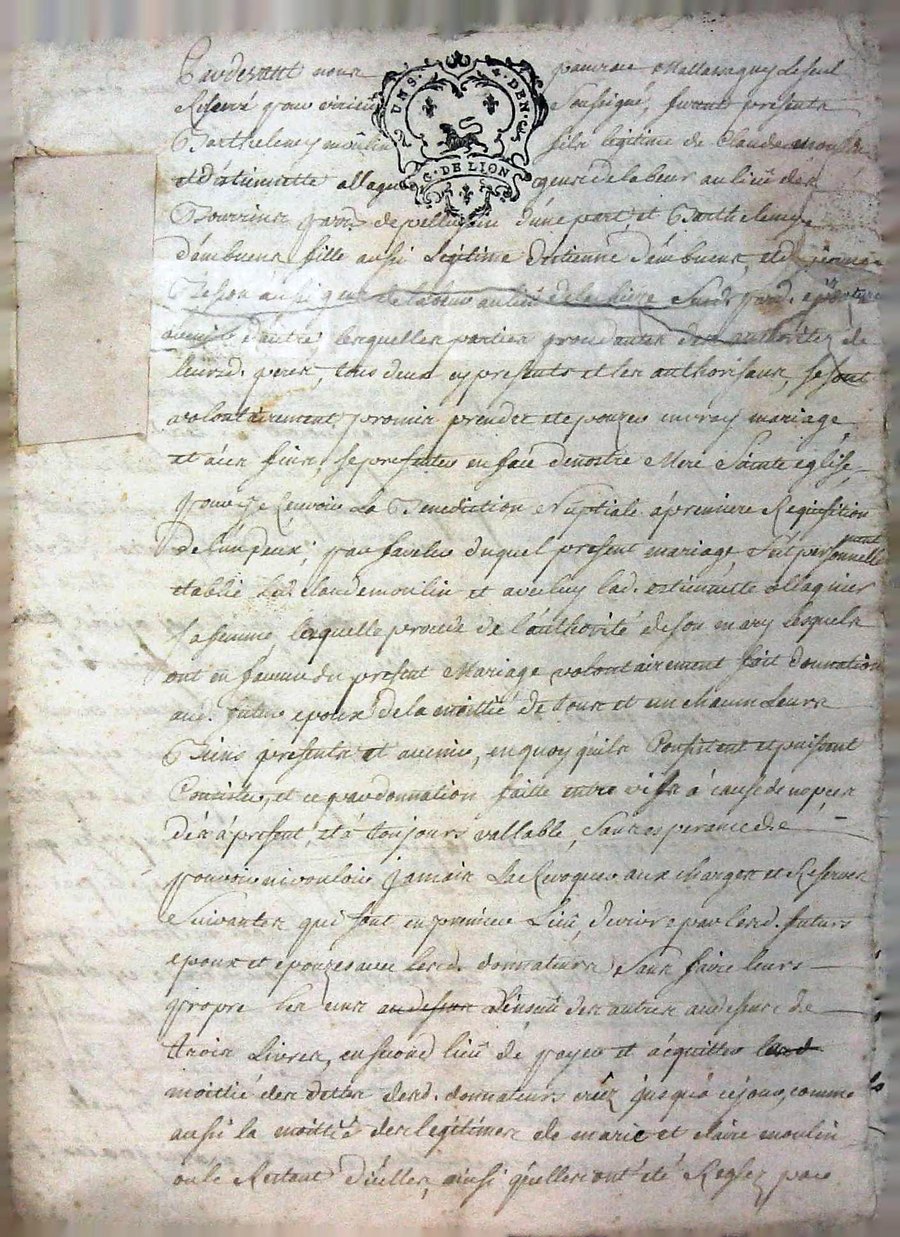 Pardevant nous
Reservé pour Soussigné, furent présents
Barthelemy moulin fils legitime de Claude moulin
et d'atiennette allagu gens de labeur au lieû des
Bourrines parr. de pellussin d'une part, et Barthelemye
d'ambuens fille aussi Legitime d'estienne d'ambuens, et de
Besson aussi gens de labeur au lieû de la susd. parr.
avenir d'autre, lesquelles parties procedantes des authoritez de
leursd. peres, tous deux cy presents et les authorisans, se sont
volontairement promis prendre et epouzer en vray mariage
et à ces fins, se presenter en face de nostre Mere Sainte église,
pour y recevoir La Benediction Nuptiale à premiere Requisition
de l'un d'eux, par faveur duquel present mariage, s'est personnellement
etablie Led. Claude moulin et avec luy lad. estiennette allagnier
sa femme, laquelle procede de l'authorité de son mary Lesquels
ont en faveur du present Mariage volontairement fait donnation
aud. futur epoux de la moitié de tous et un chacun Leurs
Biens presents et avenir, en quoy qu'ils Consistent et puissent
Consister, et ce par donnation faitte entre vifs à cause de nopces
dés à présent, et à toujours vallable, sans esperance de
pouvoir ni vouloir jamais La Revoquer aux charges et Reserves
Suivantes qui sont en premier Lieû, de vivre par lesd. futurs
epoux et epouze avec lesd. donnateurs sans faire leurs
propre les uns au dessus à l'insceu des autres au dessus de
trois Livres, en second lieû de payer et acquitter lad
moitié des dettes desd. donnateurs créez jusqu'à ce jour, comme
aussi la moittié des legitimes de marie et claire moulin
ou le Restant d'icelles, ainsi qu'elles ont été Reglez par
UNS. 4. DEN.
G. DE LION